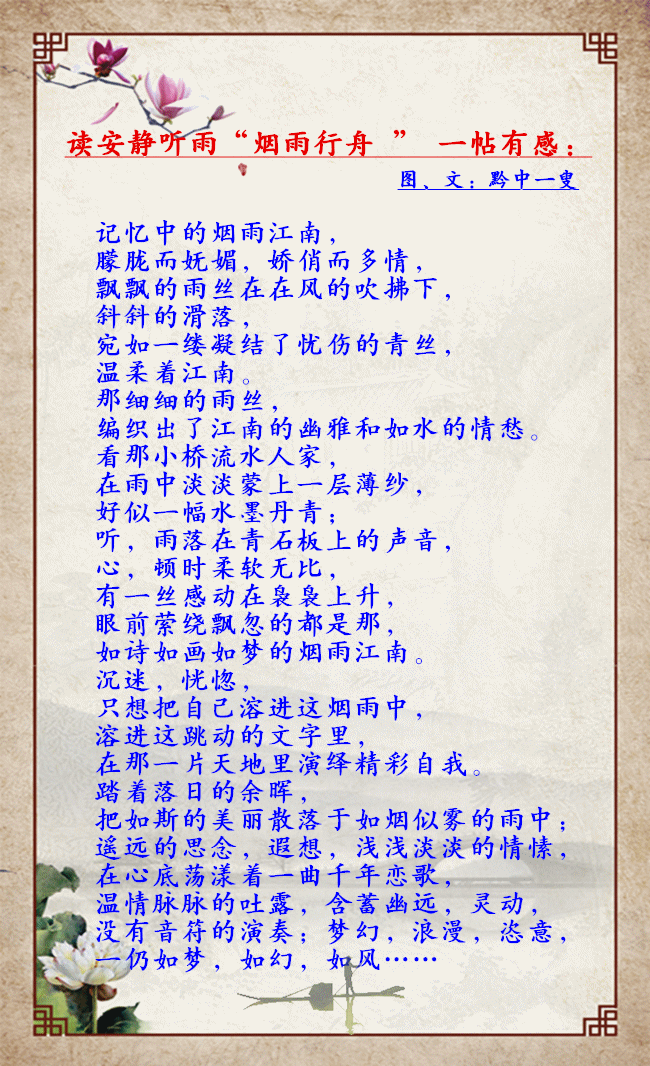 读安静听雨“烟雨行舟 ” 一帖有感：
图、文：黔中一叟
记忆中的烟雨江南，
朦胧而妩媚，娇俏而多情，
飘飘的雨丝在在风的吹拂下，
斜斜的滑落，
宛如一缕凝结了忧伤的青丝，
温柔着江南。
那细细的雨丝，
编织出了江南的幽雅和如水的情愁。
看那小桥流水人家，
在雨中淡淡蒙上一层薄纱，
好似一幅水墨丹青；
听，雨落在青石板上的声音，
心，顿时柔软无比，
有一丝感动在袅袅上升，
眼前萦绕飘忽的都是那，
如诗如画如梦的烟雨江南。
沉迷，恍惚，
只想把自己溶进这烟雨中，
溶进这跳动的文字里，
在那一片天地里演绎精彩自我。
踏着落日的余晖，
把如斯的美丽散落于如烟似雾的雨中；
遥远的思念，遐想，浅浅淡淡的情愫，
在心底荡漾着一曲千年恋歌，
温情脉脉的吐露，含蓄幽远，灵动，
没有音符的演奏；梦幻，浪漫，恣意，
一仍如梦，如幻，如风……